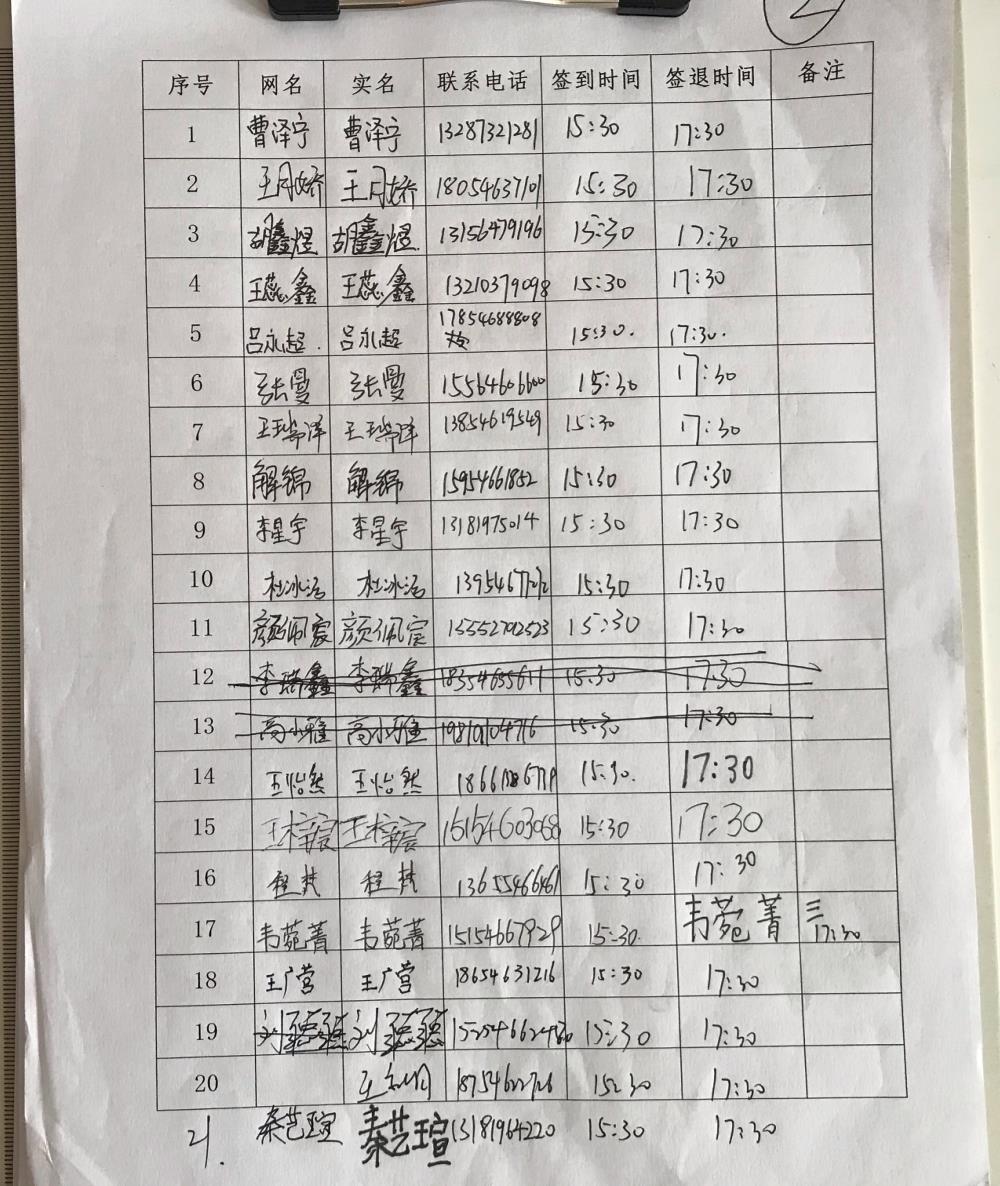 2
序号 网名 实名 联系电话 签到时间 签退时间 备注
1 曹泽宁 曹泽宁 13287321281 15:30 17:30
2 王月娇 王月娇 18054637101 15:30 17:30
3 胡鑫煜 胡鑫煜 13156479196 15:30 17:30
4 王蕊鑫 王蕊鑫 13210379098 15:30 17:30
5 吕永超 吕永超 17854688808 15:30 17:30
6 张曼 张曼 15564606600 15:30 17:30
7 13854619549 15:30 17:30
8 解锦 解锦 15954661852 15:30 17:30
9 李星宇 李星宇 13181975014 15:30 17:30
10 15:30 17:30
11 颜佩宸 颜佩宸 15552702523 15:30 17:30
12 李瑞鑫 李瑞鑫 15:30 17:30
13 高小雅 高小雅 15:30 17:30
14 王怡然 王怡然 15:30 17:30
15 王梓宸 王梓宸 15154603068 15:30 17:30
16 程梵 程梵 15:30 17:30
17 韦菀菁 韦菀菁 15154667929 15:30 韦菀菁 17:30
18 王广营 王广营 18654631216 15:30 17:30
19 15:30 17:30
20 15:30 17:30
21 秦艺瑄 秦艺瑄 13181964220 15:30 17:30